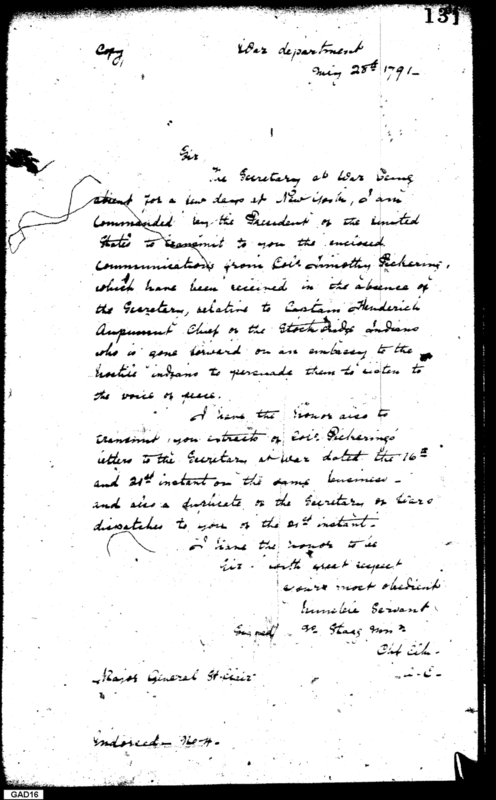 131
Copy
War department
May 28th 1791 -
Sir
The Secretary at War being
absent for a few days at New York, I am
Commanded by the President of the United
States to transmit to you the enclosed
Communications from Colo. Timothy Pickering,
which have been received in the absence of
the Secretary, relative to Captain Henderick
Chief of the Stockbridge Indians
who is gone forward on an embassy to the
hostile indians to persuade them to listen to
the voice of peace.
I have the honor also to
transmit you extracts of Colo. Pickering's
letters to the Secretary at War dated the 16th
and 21st instant on the same business -
and also a duplicate of the Secretary of Wars
dispatches to you of the 21st instant.
I have the honor to be
Sir with great respect
your most obedient
humble Servant
Signed Jno Stagg Junr
Chf Clk.
Major General St Clair
Endorsed - No 4 -
GAD16